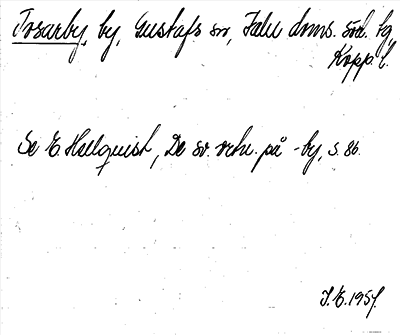 Tosarby, by, Gustafs sn, Falu doms. södr. tg,
Kopp. l.
Se E. Hellquist, De sv. ortn. på -by, s. 86.
J.E. 1957.